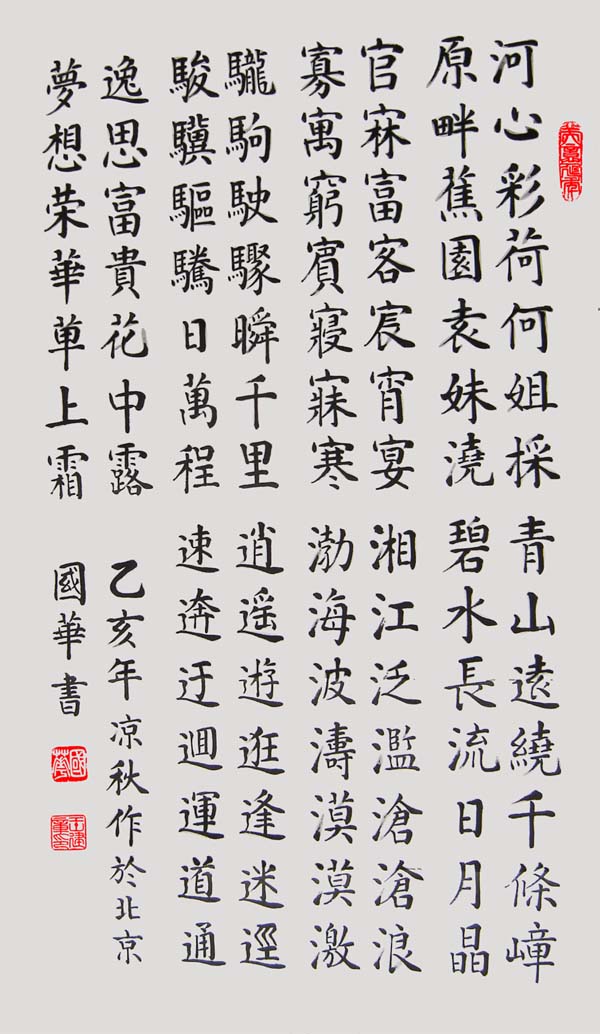 河心彩荷何姐採
原畔蕉園袁妹澆
官寐富客宸宵宴
寡寓窮賓寢寐寒
駒駛驟瞬千里
駿驥驅騰日萬程
逸思富貴花中露
夢想荣華草上霜
青山遠繞千條嶂
碧水長流日月晶
湘江泛濫滄滄浪
渤海波濤漠漠激
逍遥遊逛逢迷逕
速逩迂逥運道通
乙亥年凉秋作於北京
國華書